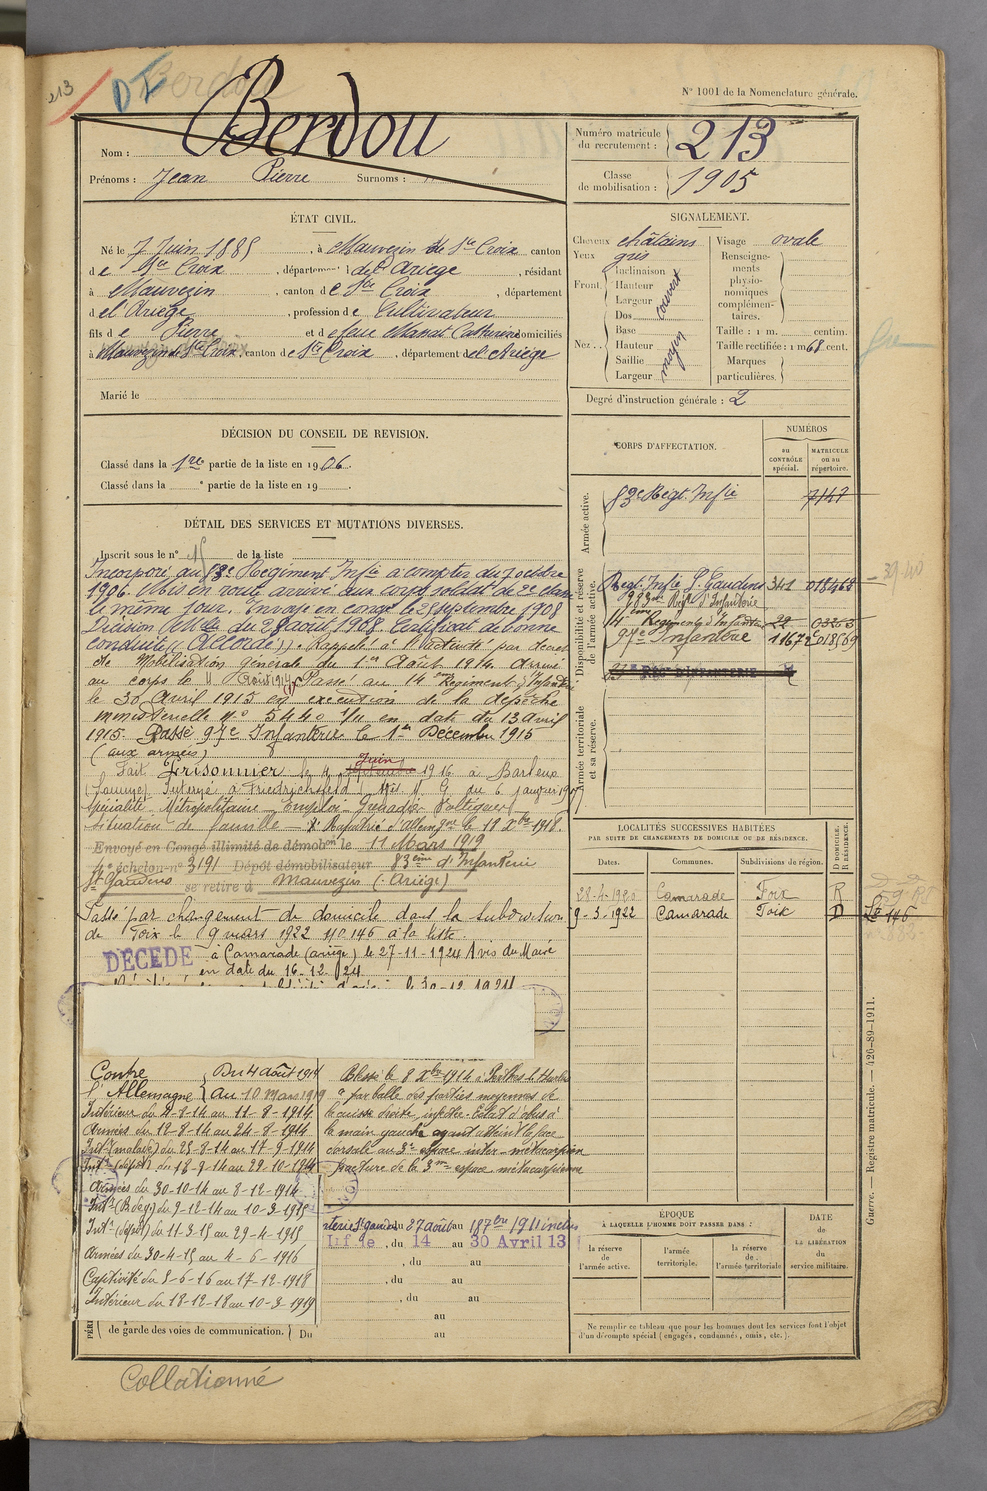 213
Berdou
N° 1001 de la Nomenclature générale.
Nom : Berdou
Prénoms : Jean Pierre Surnoms :
Numéro matricule du recrutement : 213
Classe de mobilisation : 1905
ÉTAT CIVIL.
Né le 7 Juin 1885, à Mauvezin de Ste Croix canton
de Ste Croix, département de l'Ariège, résidant
à Mauvezin, canton de Ste Croix, département
de l'Ariège, profession de Cultivateur
fils de Pierre et de feue Manat Catherine domiciliés
à Mauvezin de Ste Croix, canton de Ste Croix, département de l'Ariège
Marié le
SIGNALEMENT.
Cheveux châtains
Yeux gris
Front. Inclinaison
Hauteur
Largeur
couvert
Nez... Dos
Base
Hauteur
Saillie
Largeur
moyen
Visage ovale
Renseignements physionomiques complémentaires.
Taille : 1 m. centim.
Taille rectifiée : 1 m 68 cent.
Marques particulières.
Degré d'instruction générale : 2
DÉCISION DU CONSEIL DE REVISION.
Classé dans la 1re partie de la liste en 1906.
Classé dans la e partie de la liste en 19
DÉTAIL DES SERVICES ET MUTATIONS DIVERSES.
Inscrit sous le n° 15 de la liste
Incorporé au 83e Régiment Infie à compter du 7 octobre
1906. Mis en route arrivé aux corps soldat de 2e classe
le même jour. Envoyé en congé le 25 septembre 1908
Décision Mlle du 28 août 1908. Certificat de bonne
conduite "Accordé". Rappelé à l'activité par décret
de Mobilisation générale du 1er Août 1914. Arrivé
au corps le 11 Août 1914. Passé au 14ème Régiment d'Infanterie
le 30 Avril 1915 en exécution de la dépêche
ministérielle N° 5440 1/11 en date du 13 avril
1915. Passé 97e Infanterie le 1er Décembre 1915
(aux armées)
Fait Prisonnier le 4 Juin 1916 à Barleux
(Somme). Interné à Friedrichsfeld
Spécialité Métropolitaine Emploi Grenadier Voltigeur
Situation de famille Rapatrié d'Allemagne le 18 Xbre 1918.
Envoyé en Congé illimité de démobon le 11 Mars 1919
4e échelon n° 3191 Dépôt démobilisateur 83ème d'Infanterie
St Gaudens se retire à Mauvezin (Ariège)
Passé par changement de domicile dans la subdivision
de Foix le 9 mars 1922 N° 146 à la liste
DÉCÉDÉ à Camarade (ariège) le 27-11-1924 Avis du Maire
en date du 16-12-24
CORPS D'AFFECTATION.
NUMÉROS
au CONTRÔLE spécial.
MATRICULE ou au répertoire.
Armée active.
83e Régt. Infie 7147
Disponibilité et réserve de l'armée active.
Regt. Infie St. Gaudens 341 018463
283me Régt d'Infanterie
14ème Régiment d'Infanterie 22
97e Infanterie 11672 018569
Armée territoriale et sa réserve.
LOCALITÉS SUCCESSIVES HABITÉES
PAR SUITE DE CHANGEMENTS DE DOMICILE OU DE RÉSIDENCE.
Dates. Communes. Subdivisions de région. D DOMICILE. R RÉSIDENCE.
28-4-1920 Camarade Foix R
9-3-1922 Camarade Foix D
Contre l'Allemagne
Du 4 août 1914
au 10 mars 1919
Intérieur du 4-8-14 au 11-8-1914.
Armées du 12-8-14 au 24-8-1914
Intr (malade) du 25-8-14 au 17-9-1914
Intr (dépôt) du 18-9-14 au 29-10-1914
Armées du 30-10-14 au 8-12-1914
Intr (B de g) du 9-12-14 au 10-3-1915
Intr (dépôt) du 11-3-15 au 29-4-1915
Armées du 30-4-15 au 4-6-1916
Captivité du 5-6-16 au 17-12-1918
Intérieur du 18-12-18 au 10-3-1919
Blessé le 8 Xbre 1914 à Perthes le Hurlus
par balle des parties moyennes de
la cuisse droite, infectée. Eclat d'obus à
la main gauche ayant atteint la face
dorsale au 3e espace inter-métacarpien
fracture de la 3me espace métacarpienne
du 27 août au 18 7bre 1911 inclus
du 14 au 30 Avril 13
, du au
, du au
, du au
au
de garde des voies de communication. Du au
ÉPOQUE
À LAQUELLE L'HOMME DOIT PASSER DANS :
la réserve de l'armée active.
l'armée territoriale.
la réserve de l'armée territoriale
DATE de LA LIBÉRATION du service militaire.
Ne remplir ce tableau que pour les hommes dont les services font l'objet
d'un décompte spécial (engagés, condamnés, omis, etc.).
Guerre. — Registre matricule. — 426-89-1911.
Collationné